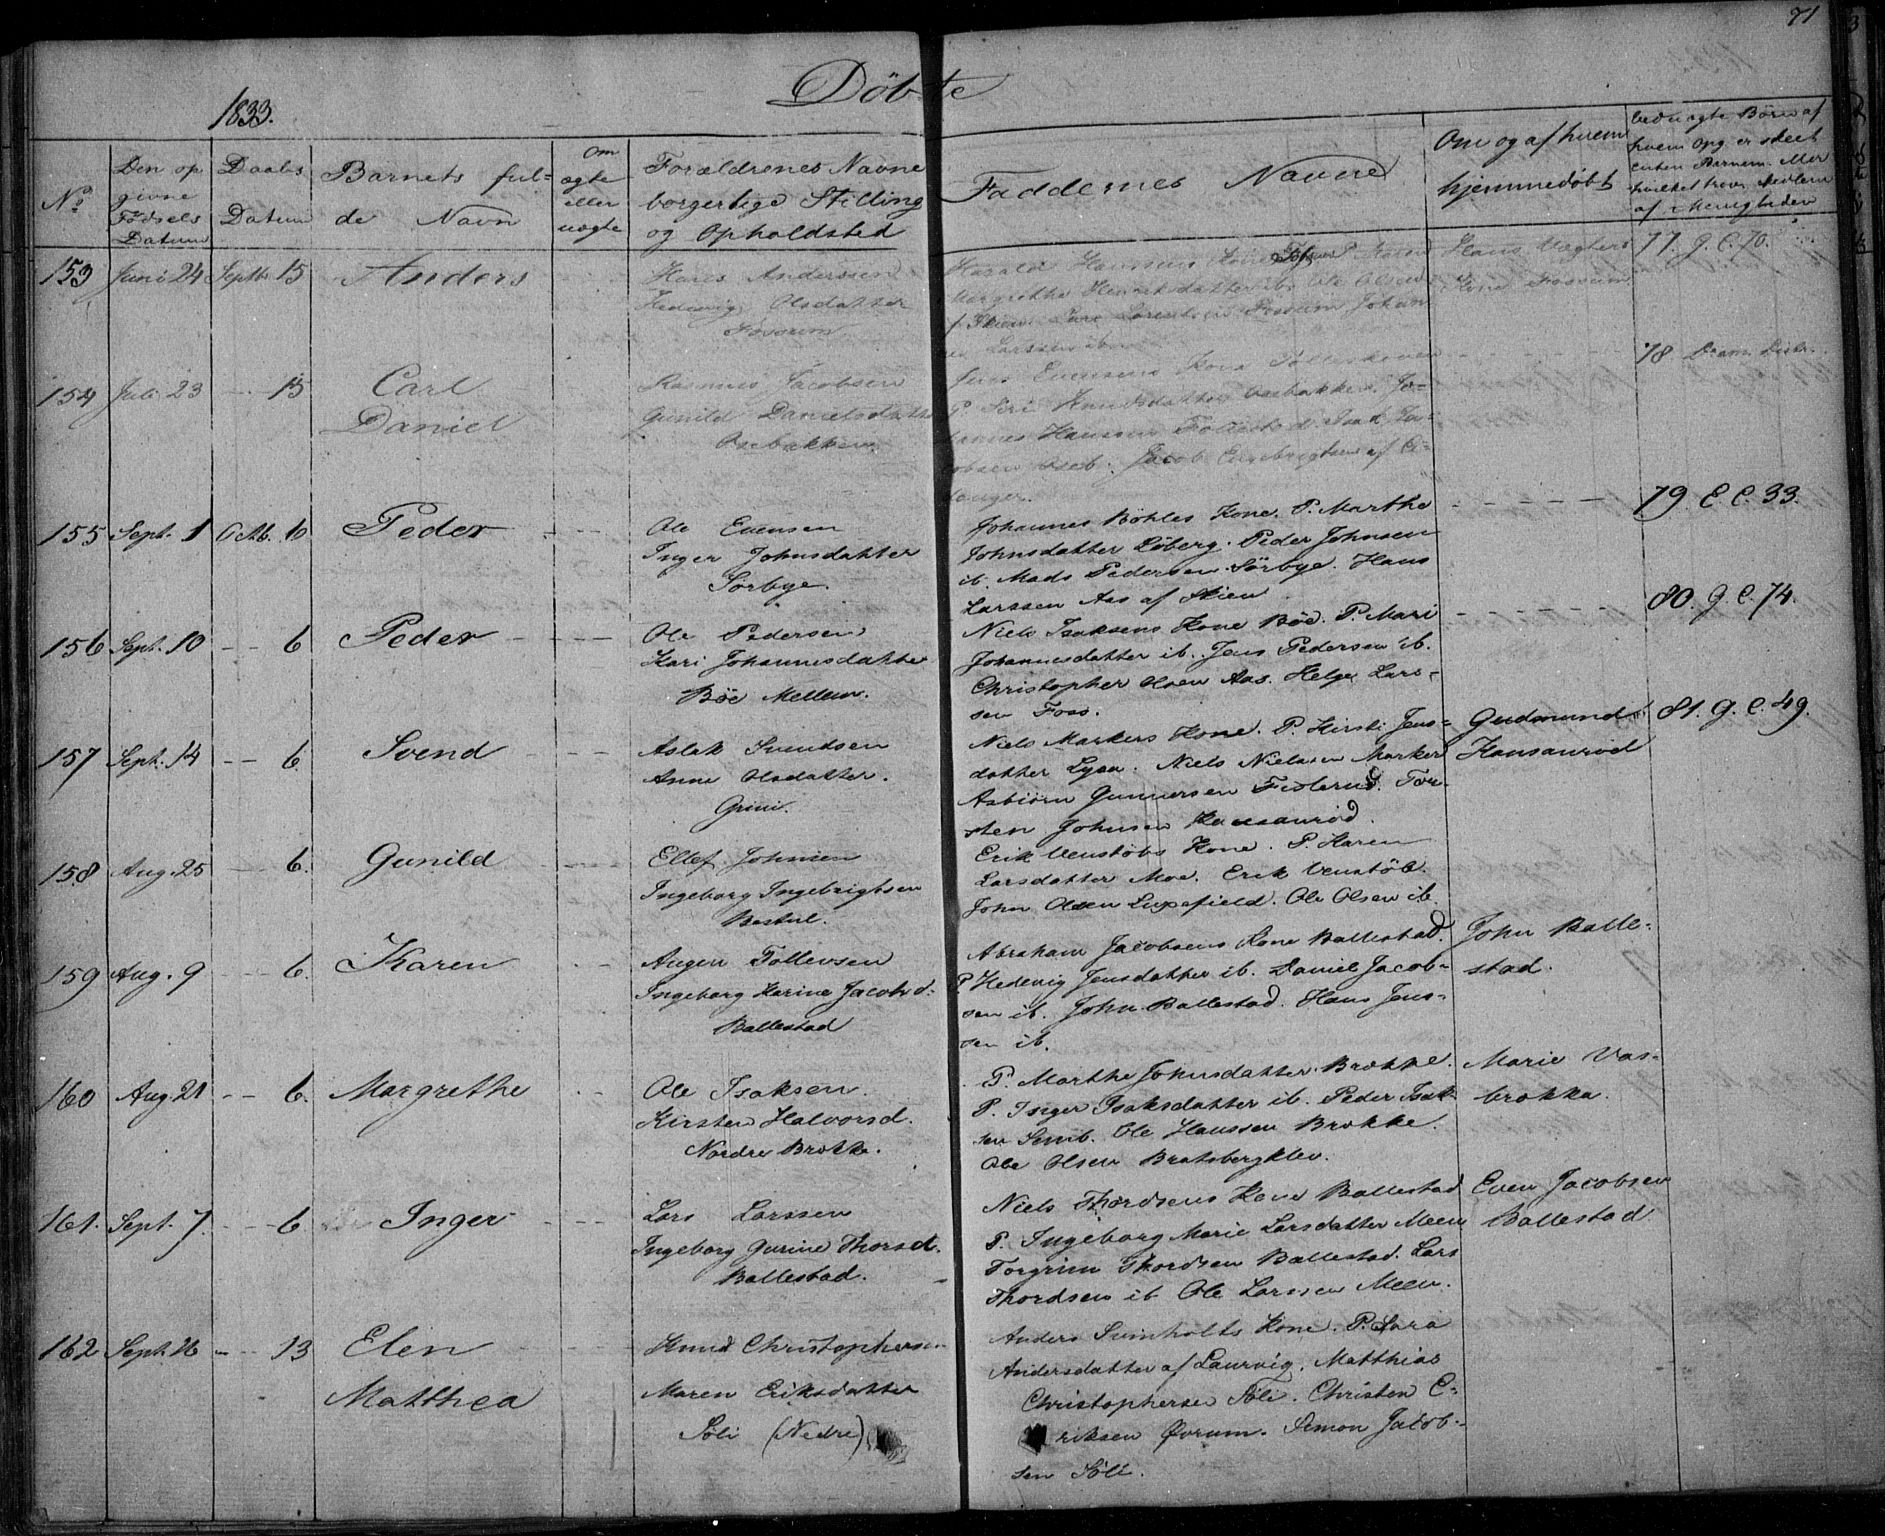 71
Döbte
1833.
No
Den op
givne
Fødsels
Datum
Daabs
Datum
Barnets ful-
de Navn
Om
ægte
eller
uægte
Forældrenes Navne
borgerlige Stilling
og Opholdsted
Faddernes Navne
Om og af hvem
hjemmedøbt
hvem opg. er skeet
af Menigheden
153 Juni 24 Septb. 15 Anders
Hans Anderssen
Hedevig Olsdatter
Fossum
Harald Hansens Kone Fossum P. Maren
Margrethe Henriksdatter ib. Ole Olsen
af Skien. Lars Larentsen Fossum Johan
Larssen ibm
Hans Vægters
Kone Fossum
77. g. C. 70.
154 Juli 23 15 Carl
Daniel
Rasmus Jacobsen
Gunild Danielsdatt
Osebakken
Jens Evensens Kone Follestad
P. Siri Knudsdatter Osebakken. Jo-
hannes Hanssen Follestad. Isak Ja-
cobsen Oseb. Jacob Engebrigtsen af Ei-
danger.
78
155 Sept. 1 Octb. 6 Peder
Ole Evensen
Inger Johnsdatter
Sørbye.
Johannes Böhles Kone. P. Marthe
Johnsdatter Løberg. Peder Johnsen
ib. Mads Pedersen Sørbye. Hans
Larssen Aas af Skien
79. C. C. 33.
156 Sept. 10 6 Peder
Ole Pedersen
Kari Johannesdatter
Böe Mellem.
Niels Isaksens Kone Böe. P. Mari
Johannesdatter ib. Jens Pedersen ib.
Christopher Olsen Aas. Helge Lars-
sen Foss.
80. g. C. 74.
157 Sept. 14 6. Svend
Aslak Svendsen
Anne Olsdatter.
Grini.
Niels Markers Kone. P. Kirsti Jens-
datter Lysa. Niels Nielssen Marker
Asbiörn Gunnersen Fidlerud. Tor-
sten Johnsen Kansanrød.
Gudmund
Kansanrød
81. g. C. 49.
158 Aug. 25 6. Gunild
Ellef Johnsen
Ingeborg Ingebrigtsen
Bestul.
Erik Venstöbs Kone. P. Karen
Larsdatter Moe. Erik Venstöb.
John Olsen Luxefield. Ole Olsen ib.
159 Aug. 9 6. Karen
Augen Tollevsen
Ingeborg Karine Jacobsd-
Ballestad
Abraham Jacobsens Kone Ballestad.
P. Hedevig Jensdatter ib. Daniel Jacob-
sen ib. John Ballestad. Hans Jens-
sen ib.
John Balle-
stad.
160 Aug. 21 6. Margrethe
Ole Isaksen.
Kirsten Halvorsd.
Nordre Brokke.
P. Marthe Johnsdatter Brokke.
P. Inger Isaksdatter ib. Peder Isak-
sen Semb. Ole Hanssen Brokke.
Ole Olsen Bratsbergklev.
Marie Vas-
brokka.
161. Sept. 7. 6. Inger
Lars Larssen
Ingeborg Gurine Thorsd.
Ballestad.
Niels Thordsens Kone Ballestad
P. Ingeborg Marie Larsdatter Meen
Torgrim Thordsen Ballestad. Lars
Thordsen ib. Ole Larssen Meen.
Even Jacobsen
Ballestad
162 Sept. 16 13 Elen
Matthea
Knud Christophersen
Maren Eriksdatter
Söli (Nedre)
Anders Svinholts Kone. P. Sara
Andersdatter af Laurvig. Matthias
Christophersen Söli. Christen E-
riksen Øvrum. Simon Jacob-
sen Söli.